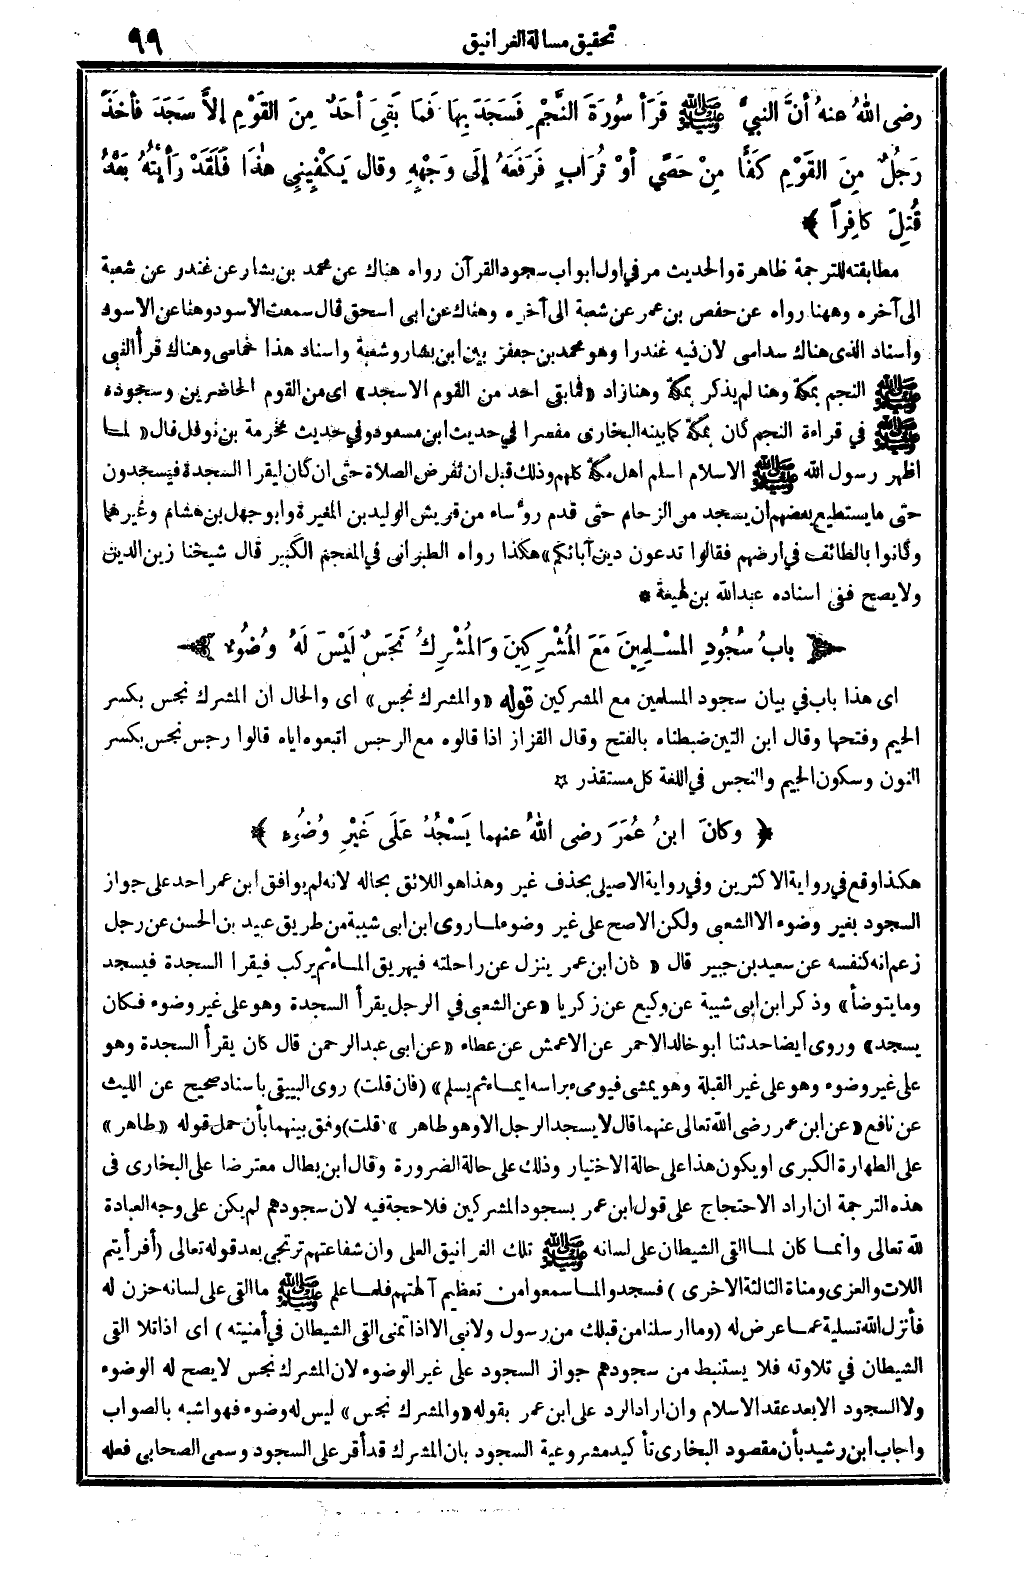 تحقيق مسالة الغرانيق ٩٩
رضى اللهُ عنهُ أنَّ النبيَّ ﷺ قَرَأ سُورَةَ النَّجْمِ فَسَجَدَ بِهَا فَمَا بَقِيَ أحَدٌ مِنَ القَوْمِ إلاَّ سَجَدَ فأخَذَ
رَجُلٌ مِنَ القَوْمِ كَفًّا مِنْ حَصًى أوْ تُرَابٍ فَرَفَعَهُ إلَى وَجْهِهِ وقال يَكْفِينِي هٰذَا فَلَقَدْ رَأيْتُهُ بَعْدُ
قُتِلَ كافِراً ﴾
مطابقته للترجمة ظاهرة والحديث مر في اول ابواب سجود القرآن رواه هناك عن محمد بن بشار عن غندر عن شعبة
الى آخره وههنا رواه عن حفص بن عمر عن شعبة الى آخره وهناك عن ابى اسحق قال سمعت الاسود وهنا عن الاسود
واسناد الذى هناك سداسى لان فيه غندرا وهو محمد بن جعفر بين ابن بشار وشعبة واسناد هذا خماسى وهناك قرأ النبى
ﷺ النجم بمكة وهنا لم يذكر بمكة وهنا زاد «فما بقى احد من القوم الا سجد» اى من القوم الحاضرين وسجوده
ﷺ في قراءة النجم كان بمكة كما بينه البخارى مفسرا في حديث ابن مسعود وفي حديث مخرمة بن نوفل قال «لما
اظهر رسول الله ﷺ الاسلام اسلم اهل مكة كلهم وذلك قبل ان تفرض الصلاة حتى ان كان ليقرا السجدة فيسجدون
حتى ما يستطيع بعضهم ان يسجد من الزحام حتى قدم رؤساء من قريش الوليد بن المغيرة وابو جهل بن هشام وغيرهما
وكانوا بالطائف في ارضهم فقالوا تدعون دين آبائكم» هكذا رواه الطبرانى في المعجم الكبير قال شيخنا زين الدين
ولا يصح ففى اسناده عبدالله بن لهيعة *
﴿ بابُ سُجُودِ المسْلِمِينَ مَعَ المُشْرِكِينَ وَالمُشْرِكُ نَجَسٌ لَيْسَ لَهُ وُضُوء ﴾
اى هذا باب في بيان سجود المسلمين مع المشركين قوله «والمشرك نجس» اى والحال ان المشرك نجس بكسر
الجيم وفتحها وقال ابن التين ضبطناه بالفتح وقال القزاز اذا قالوه مع الرجس اتبعوه اياه قالوا رجس نجس بكسر
النون وسكون الجيم والنجس في اللغة كل مستقذر ☆
﴿ وكانَ ابنُ عُمَرَ رضى اللهُ عنهما يَسْجُدُ عَلَى غَيْرِ وُضُوءٍ ﴾
هكذا وقع في رواية الاكثرين وفي رواية الاصيلى بحذف غير وهذا هو اللائق بحاله لانه لم يوافق ابن عمر احد على جواز
السجود بغير وضوء الا الشعبى ولكن الاصح على غير وضوء لما روى ابن ابى شيبة من طريق عبيد بن الحسن عن رجل
زعم انه كنفسه عن سعيد بن جبير قال «كان ابن عمر ينزل عن راحلته فيهريق الماء ثم يركب فيقرا السجدة فيسجد
وما يتوضأ» وذكر ابن ابى شيبة عن وكيع عن زكريا «عن الشعبى في الرجل يقرأ السجدة وهو على غير وضوء فكان
يسجد» وروى ايضا حدثنا ابو خالد الاحمر عن الاعمش عن عطاء «عن ابى عبد الرحمن قال كان يقرأ السجدة وهو
على غير وضوء وهو على غير القبلة وهو يمشى فيومىء براسه ايماء ثم يسلم» (فان قلت) روى البيهقى باسناد صحيح عن الليث
عن نافع «عن ابن عمر رضى الله تعالى عنهما قال لا يسجد الرجل الا وهو طاهر» (قلت) وفق بينهما بأن حمل قوله «طاهر»
على الطهارة الكبرى او يكون هذا على حالة الاختيار وذلك على حالة الضرورة وقال ابن بطال معترضا على البخارى فى
هذه الترجمة ان اراد الاحتجاج على قول ابن عمر بسجود المشركين فلا حجة فيه لان سجودهم لم يكن على وجه العبادة
لله تعالى وانما كان لما القى الشيطان على لسانه ﷺ تلك الغرانيق العلى وان شفاعتهم ترتجى بعد قوله تعالى (أفرأيتم
اللات والعزى ومناة الثالثة الاخرى) فسجدوا لما سمعوا من تعظيم آلهتهم فلما علم ﷺ ما القى على لسانه حزن له
فأنزل الله تسلية عما عرض له (وما ارسلنا من قبلك من رسول ولا نبى الا اذا تمنى القى الشيطان في أمنيته) اى اذا تلا القى
الشيطان في تلاوته فلا يستنبط من سجودهم جواز السجود على غير الوضوء لان المشرك نجس لا يصح له الوضوء
ولا السجود الا بعد عقد الاسلام وان اراد الرد على ابن عمر بقوله «والمشرك نجس» ليس له وضوء فهو اشبه بالصواب
واجاب ابن رشيد بأن مقصود البخارى تأكيد مشروعية السجود بان المشرك قد أقر على السجود وسمى الصحابى فعله